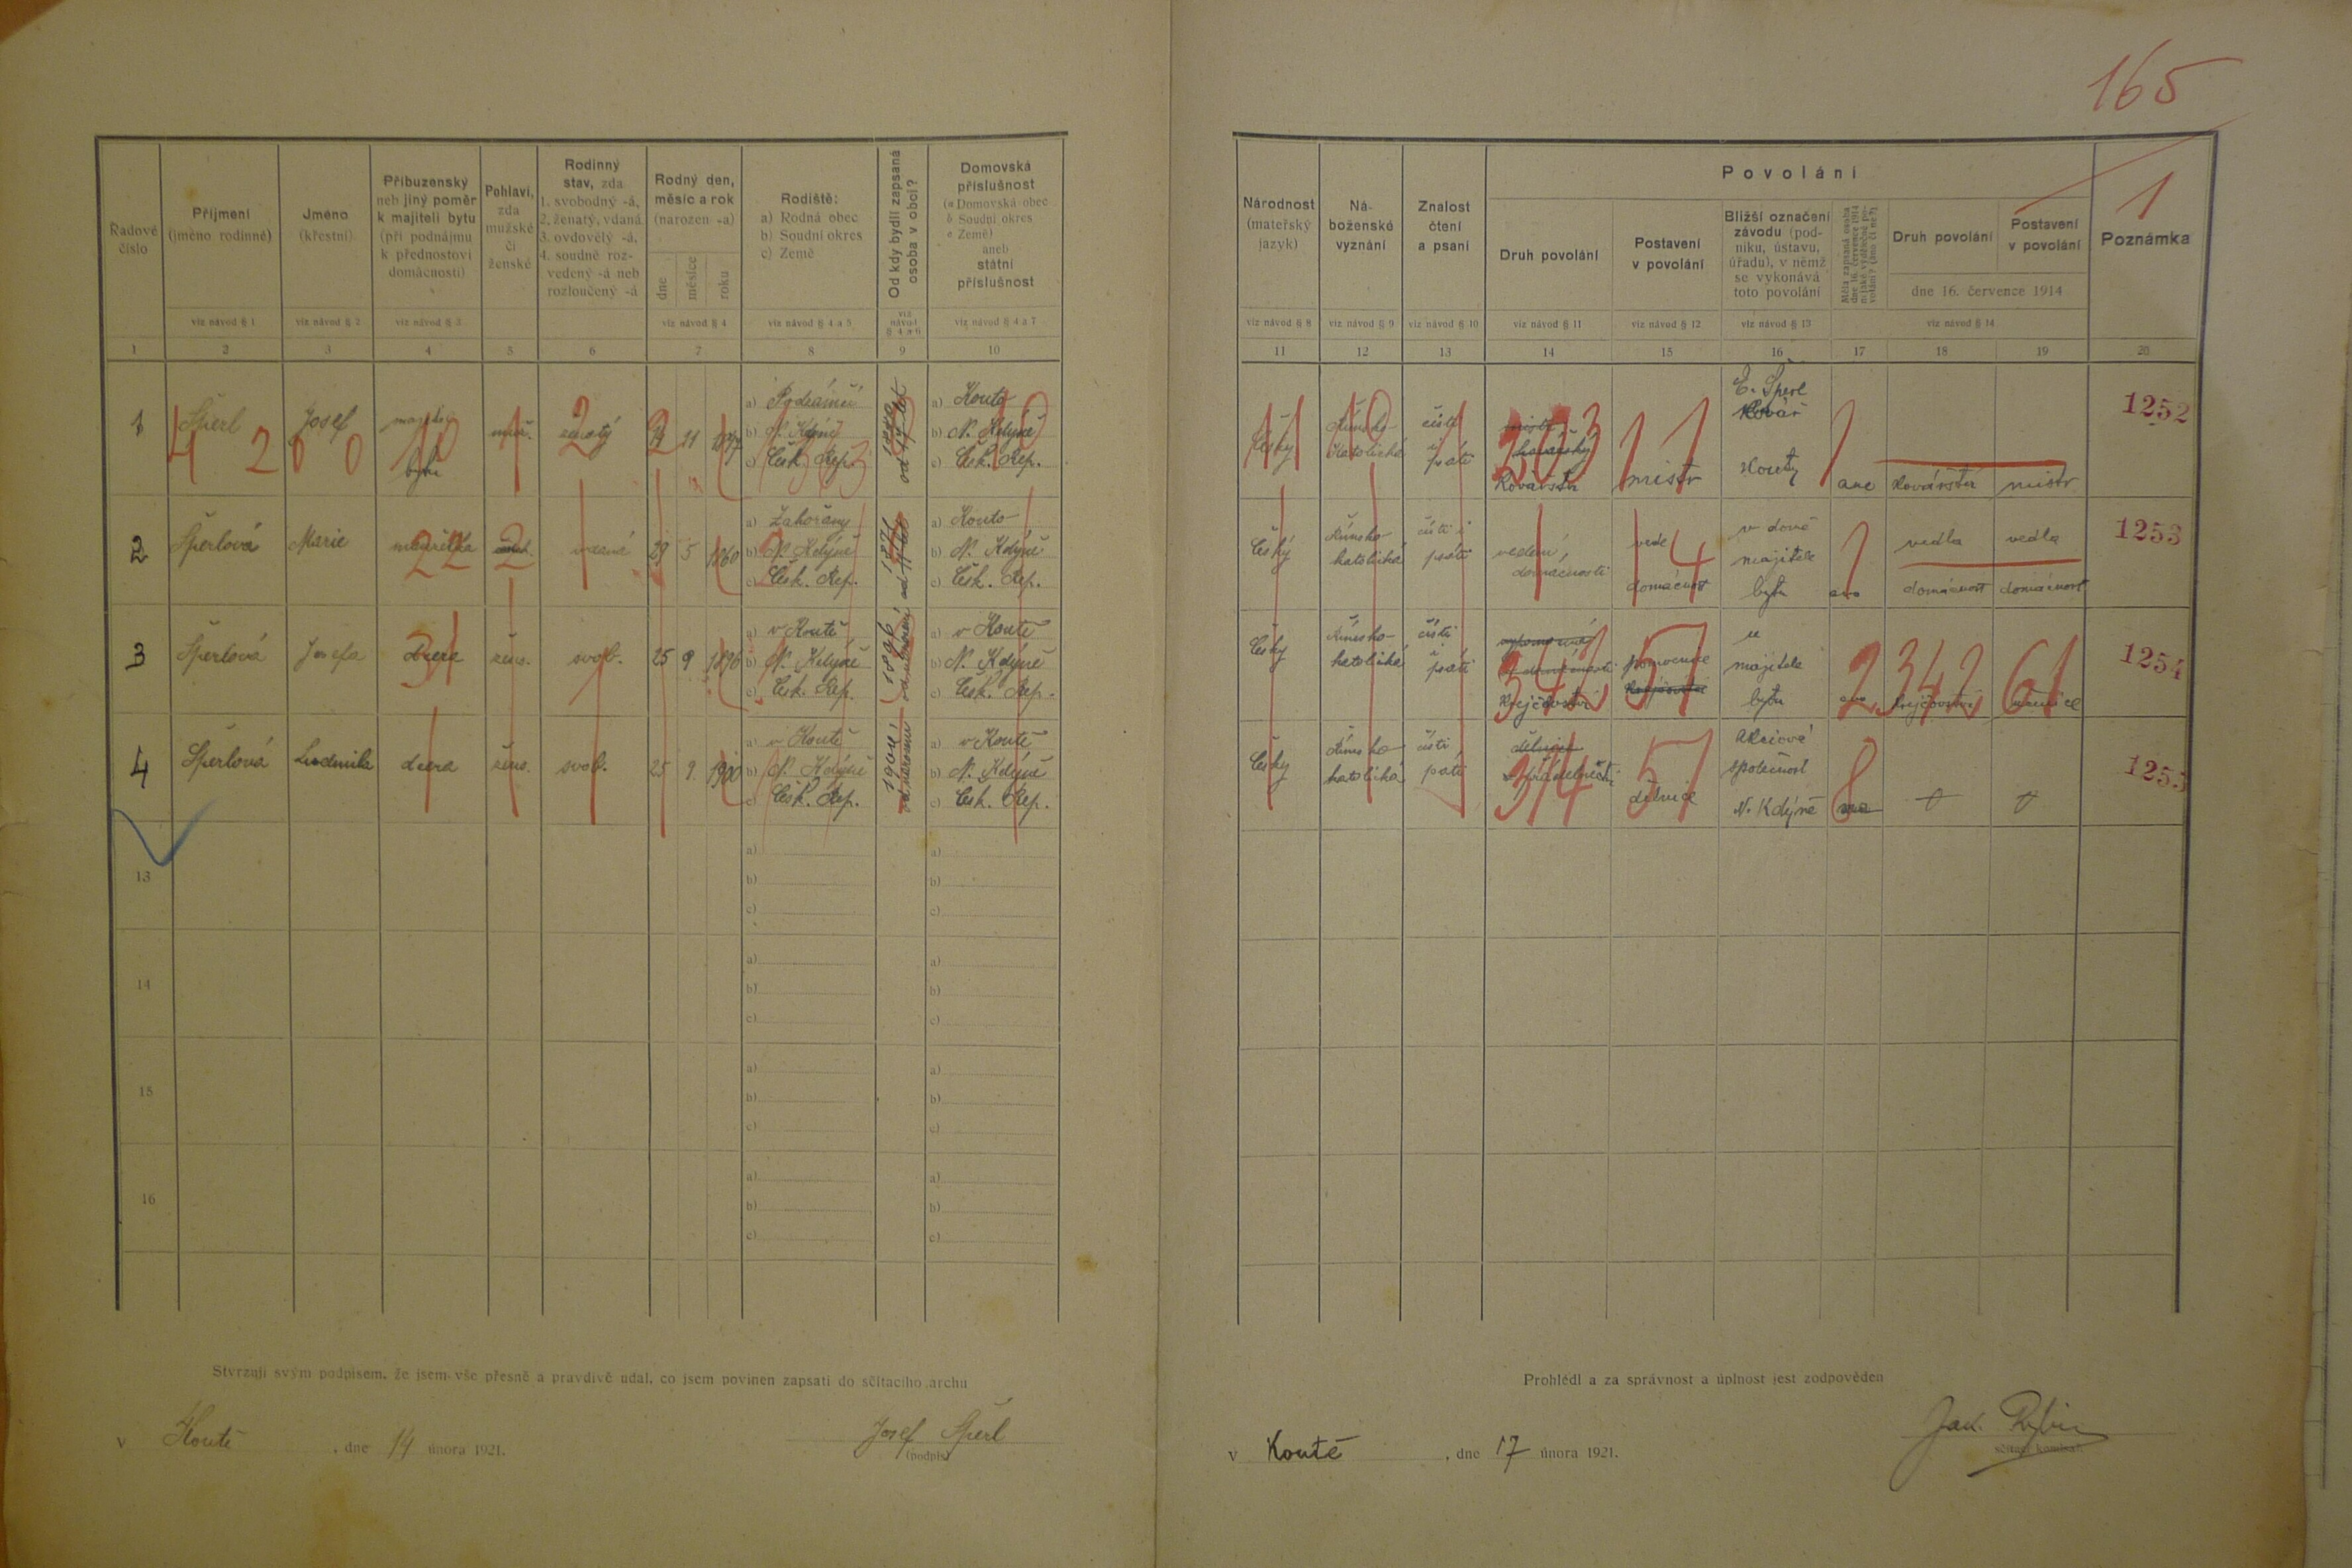 165
Řadové číslo
Příjmení (jméno rodinné)
Jméno (křestní)
Příbuzenský neb jiný poměr k majiteli bytu (při podnájmu k přednostovi domácnosti)
Pohlaví, zda mužské či ženské
Rodinný stav, zda 1. svobodný -á, 2. ženatý, vdaná 3. ovdovělý -á, 4. soudně rozvedený -á neb rozloučený -á
Rodný den, měsíc a rok (narozen -a)
dne
měsíce
roku
Rodiště: a) Rodná obec b) Soudní okres c) Země
Od kdy bydlí zapsaná osoba v obci?
Domovská příslušnost (a Domovská obec b Soudní okres c Země) aneb státní příslušnost
viz návod § 1
viz návod § 2
viz návod § 3
viz návod § 4
viz návod § 4 a 5
viz návod § 4 a 6
viz návod § 4 a 7
1 2 3 4 5 6 7 8 9 10
Národnost (mateřský jazyk)
Náboženské vyznání
Znalost čtení a psaní
Povolání
Druh povolání
Postavení v povolání
Bližší označení závodu (podniku, ústavu, úřadu), v němž se vykonává toto povolání
Druh povolání
Postavení v povolání
dne 16. července 1914
1
Poznámka
viz návod § 8
viz návod § 9
viz návod § 10
viz návod § 11
viz návod § 12
viz návod § 13
viz návod § 14
11 12 13 14 15 16 17 18 19 20
1 Šperl Josef
bytu
ženatý
11
a)
b) N. Kdýně
c) Česk. Rep.
a) Kouto
b) N. Kdýně
c) Česk. Rep.
český
katolické
čísti
psáti
203
Kovářství
mistr
E. Šperl
Kovář
Kouty
ano
Kovářství
mistr
1252
2 Šperlová Marie
22
2
vdaná
29 5 1860
a) Zahořany
b) N. Kdýně
c) Česk. Rep.
a) Kouto
b) N. Kdýně
c) Česk. Rep.
český
římsko-
katolická
čísti i
psáti
vedení
domácnosti
vede
domácnost
v domě
majitele
bytu
ano
vedla
domácnost
vedla
domácnost
1253
3 Šperlová Josefa
dcera
žens.
svob.
25 9 1896
a) v Koutě
b) N. Kdýně
c) Česk. Rep.
1896
a) v Koutě
b) N. Kdýně
c) Česk. Rep.
český
římsko-
katolické
čísti
psáti
342
Krejčovství
51
u
majitele
bytu
2
342
krejčovství
61
1254
4 Šperlová Ludmila
dcera
žens.
svob.
25 9. 1900
a) v Koutě
b) N. Kdýně
c) Česk. Rep.
od narození
a) v Koutě
b) N. Kdýně
c) Česk. Rep.
český
římsko-
katolická
čísti
psáti
314
51
dělnice
Akciová
společnost
N. Kdýně
8
1255
13
a)
b)
c)
a)
b)
c)
14
a)
b)
c)
a)
b)
c)
15
a)
b)
c)
a)
b)
c)
16
a)
b)
c)
a)
b)
c)
Stvrzuji svým podpisem, že jsem vše přesně a pravdivě udal, co jsem povinen zapsati do sčítacího archu
v Koutě, dne 14 února 1921.
Josef Šperl
(podpis)
Prohlédl a za správnost a úplnost jest zodpověden
v Koutě, dne 17 února 1921.
sčítací komisař.